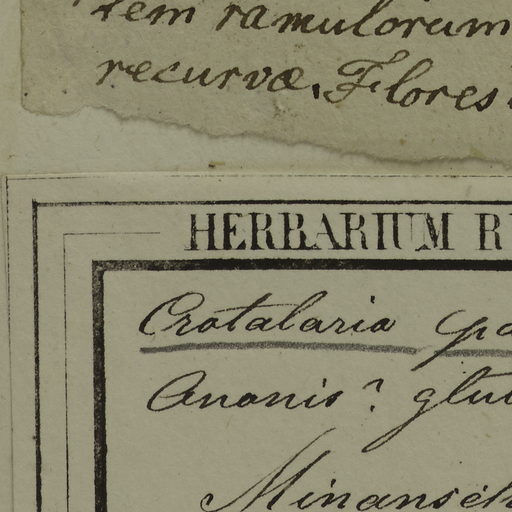 tem ramulorum
recurvæ. Flores
HERBARIUM R
Crotalaria pa
Ananis? glu
Minansch